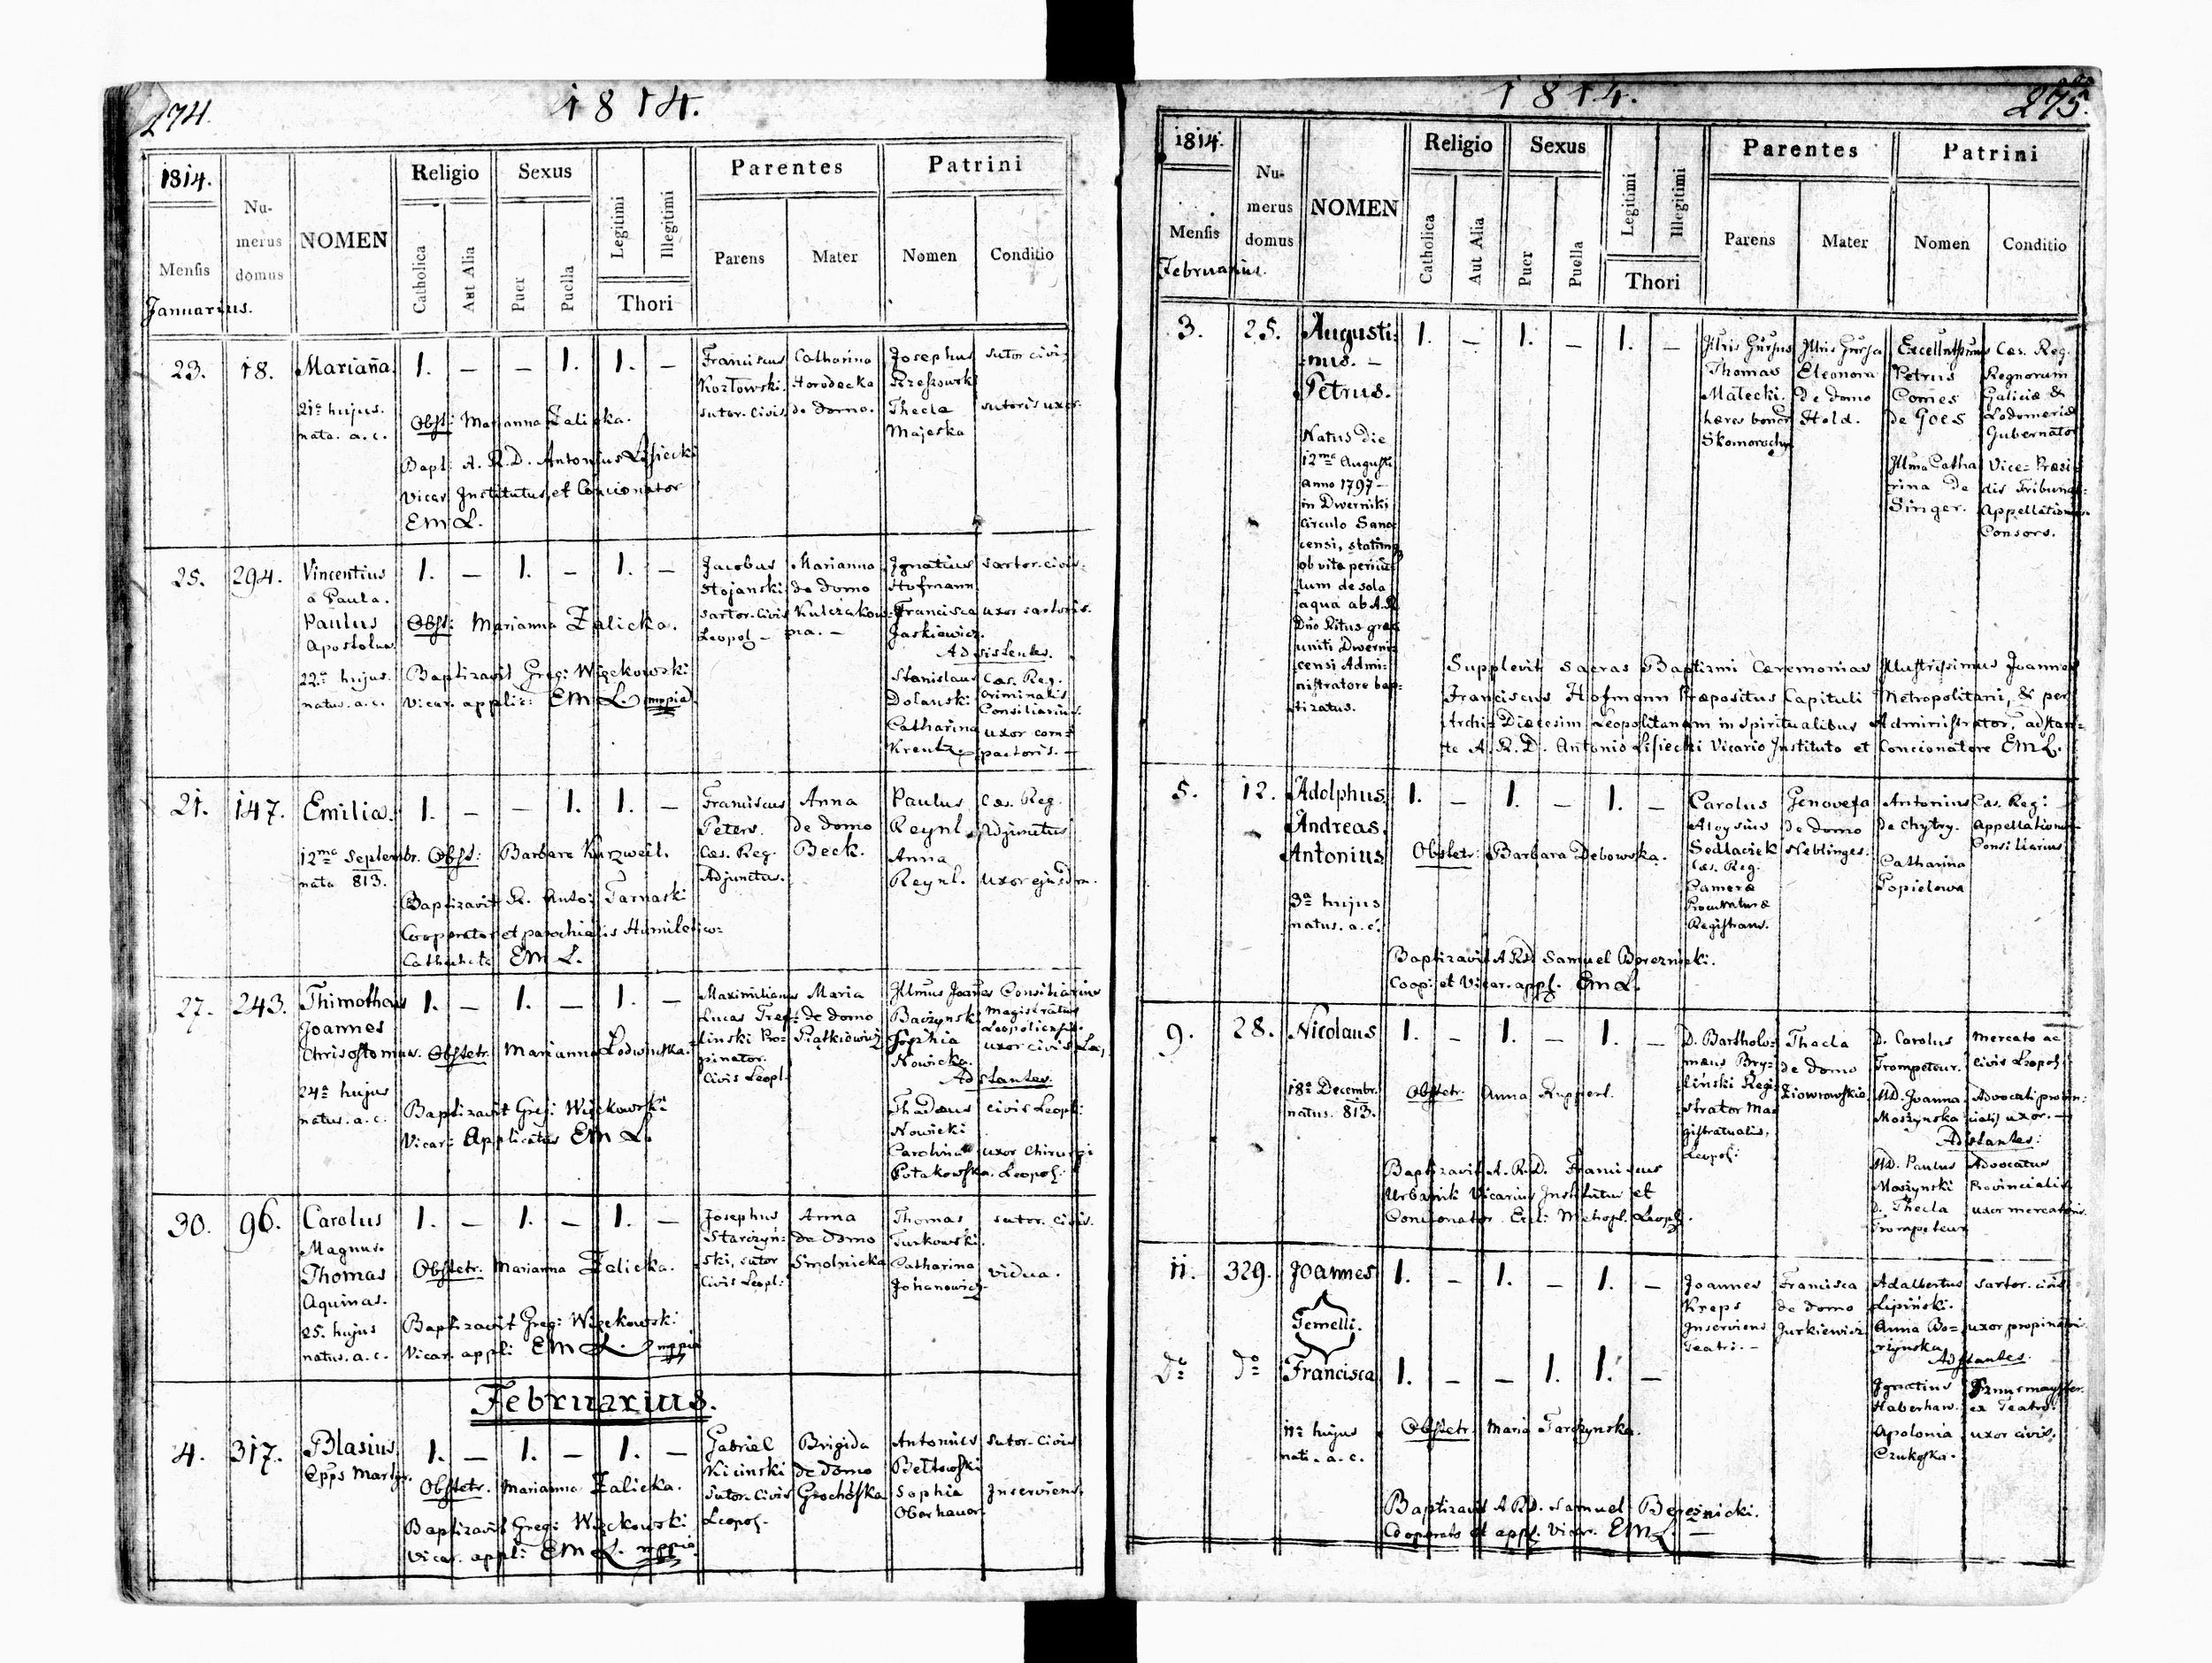 274.
1814.
1814.
Mensis
Januarius.
Nu-
merus
domus
NOMEN
Religio
Catholica
Aut Alia
Sexus
Puer
Puella
Legitimi
Illegitimi
Thori
Parentes
Parens
Mater
Patrini
Nomen
Conditio
23.
18.
Marianna
21a hujus.
nata. a. c.
1. — — 1. 1. —
Obst: Marianna Zalicka.
Bapt: A. R. D. Antonius Lisiecki
Vicar Institutus et Concionator
EML.
Franciscus
Kozłowski.
sutor. civis
Catharina
Horodecka
de domo.
Josephus
Rzeszowski
Thecla
Majeska
sutor civi:
sutoris uxor.
25.
294.
Vincentius
a Paula.
Paulus
Apostolus
22a hujus.
natus. a. c.
1. — 1. — 1. —
Obst: Marianna Zalicka.
Baptizavit Greg: Więckowski
Vicar. applic: EML. mppia
Jacobus
Stojanski
sartor. civis
Leopol —
Marianna
de domo
Kulczakow:
ska. —
Ignatius
Hofmann
Francisca
Jaskiewicz.
sartor. civis.
uxor sartoris.
Adsistentes.
Stanislaus
Dolanski
Catharina
Kreutz.
Cæs. Reg.
Criminalis
Consiliarius.
uxor com=
pactoris. —
21.
147.
Emilia.
12ma Septembr.
nata 813.
1. — — 1. 1. —
Obst: Barbara Kurzweil.
Baptizavit R. Anto: Tarnaski
Cooperator et parochialis Humilis w:
Cathecheta EML.
Franciscus
Peters.
Cæs. Reg.
Adjunctus.
Anna
de domo
Beck.
Paulus
Reynl.
Anna
Reynl.
Cæs. Reg.
Adjunctus
Uxor ejusdem.
27.
243.
Thimotheus
Joannes
Chrisostomus.
24a hujus
natus. a. c.
1. — 1. — 1. —
Obstetr. Marianna
Baptizavit Greg: Więckowski
Vicar: Applicatus EML.
Maximilianus
Lucas Tref:
linski Pro=
pinator.
Civis Leopl.
Maria
de domo
Piątkiewicz
Illmus Joanes
Baczynski
Sophia
Nowicka.
Consiliarius
Magistratus
Leopoliensis.
uxor civis Leo,
Adstantes
Thadæus
Nowicki
Carolina
Potakowska.
civis Leopl:
uxor Chirurgi
Leopol:
30.
96.
Carolus
Magnus.
Thomas
Aquinas.
25. hujus
natus. a. c.
1. — 1. — 1. —
Obstetr. Marianna Zalicka.
Baptizavit Greg: Więckowski:
Vicar. appli: EML. mppia
Josephus
Starczyń-
ski, sutor
civis Leopl:
Anna
de domo
Smolnicka
Thomas
Turkowski.
Catharina
Johanowicz.
sutor. civis.
vidua.
Februarius.
4.
317.
Blasius
Epps Martyr.
1. — 1. — 1. —
Obstetr. Marianna Zalicka.
Baptizavit Greg: Więckowski
Vicar. appli: EML. mppia
Gabriel
Kicinski
sutor. civis
Leopol.
Brigida
de domo
Grochofska
Antonius
Bełtowski
Sophia
Oberhauer.
sutor. civis
Inserviens.
275.
1814.
1814.
Mensis
Februarius.
Nu-
merus
domus
NOMEN
Religio
Catholica
Aut Alia
Sexus
Puer
Puella
Legitimi
Illegitimi
Thori
Parentes
Parens
Mater
Patrini
Nomen
Conditio
3.
25.
Augusti:
nus. —
Petrus.
Natus die
12ma Augusti
anno 1797 —
in Dwerniki
Circulo Sano
censi, statimq
ob vitæ pericu
lum de sola
aqua ab A. R.
Dno Ritus græc
uniti Dwerni:
censi Admi:
nistratore bap:
tizatus.
1. — 1. — 1. —
Thomas
Malecki.
hæres bonor
Skomorochy
Eleonora
De domo
Hold.
Excellentissimus
Petrus
Comes
de Goes
Cæs. Reg.
Regnorum
Galiciæ &
Lodomeriæ
Gubernator
Illma Catha
rina De
Singer.
Vice= Præsi:
dis Tribunal:
Appellationum
Consors.
Supplevit sacras Baptismi Cæremonias Illustrissimus Joannes
Franciscus Hofmann Præpositus Capituli Metropolitani, & per
Archi= Diæcesim Leopolitanam in spiritualibus Administrator, adstan=
te A. R. D. Antonio Lisiecki Vicario Instituto et Concionatore EML.
5.
12.
Adolphus
Andreas
Antonius
3a hujus
natus. a. c.
1. — 1. — 1. —
Obstetr: Barbara Debowska.
Baptizavit A RD Samuel Bereznicki.
Coop: et Vicar. appl. EML.
Carolus
Aloysius
Sedlaciek
Cæs. Reg.
Cameræ
Procuraturæ
Registrans.
Genovefa
de domo
Neblinges:
Antonius
de Chytry.
Catharina
Topielowa
Cæs. Reg:
Appellationum
Consiliarius
9.
28.
Nicolaus
18a Decembr.
natus. 813.
1. — 1. — 1. —
Obstetr. Anna Ruppert.
Baptizavit A. R. D. Franciscus
Urbanik Vicarius Institutus et
Concionator Ecl: Metropl. Leopl.
D. Bartholo=
mæus Bry=
liński Regi=
strator Ma=
gistratualis,
Leopol:
Thecla
de domo
Ziowrowskia
D. Carolus
Trompeteur.
MD. Joanna
Moszynska
mercato ac
civis Leopol:
Advocati provin:
cialis uxor. —
Adstantes:
MD. Paulus
Moszynski
D. Thecla
Trompeteur
Advocatus
Provincialis
uxor mercatoris.
11.
329.
Joannes
Gemelli.
1. — 1. — 1. —
Do
do
Francisca
11a hujus
nati. a. c.
1. — — 1. 1. —
Obstetr. Maria Tarczynska.
Baptizavit A RD. Samuel Bereznicki.
Cooperato et appl. Vicar. EML. —
Joannes
Kreps
Inserviens
Teatri. —
Francisca
de domo
Jurkiewicz
Adalbertus
Lipiński.
Anna Bo=
rzynska
sartor. civis
uxor propinatoris
Adstantes.
Ignatius
Haberhau.
Apolonia
Czukofska.
ex Teatro.
uxor civis.